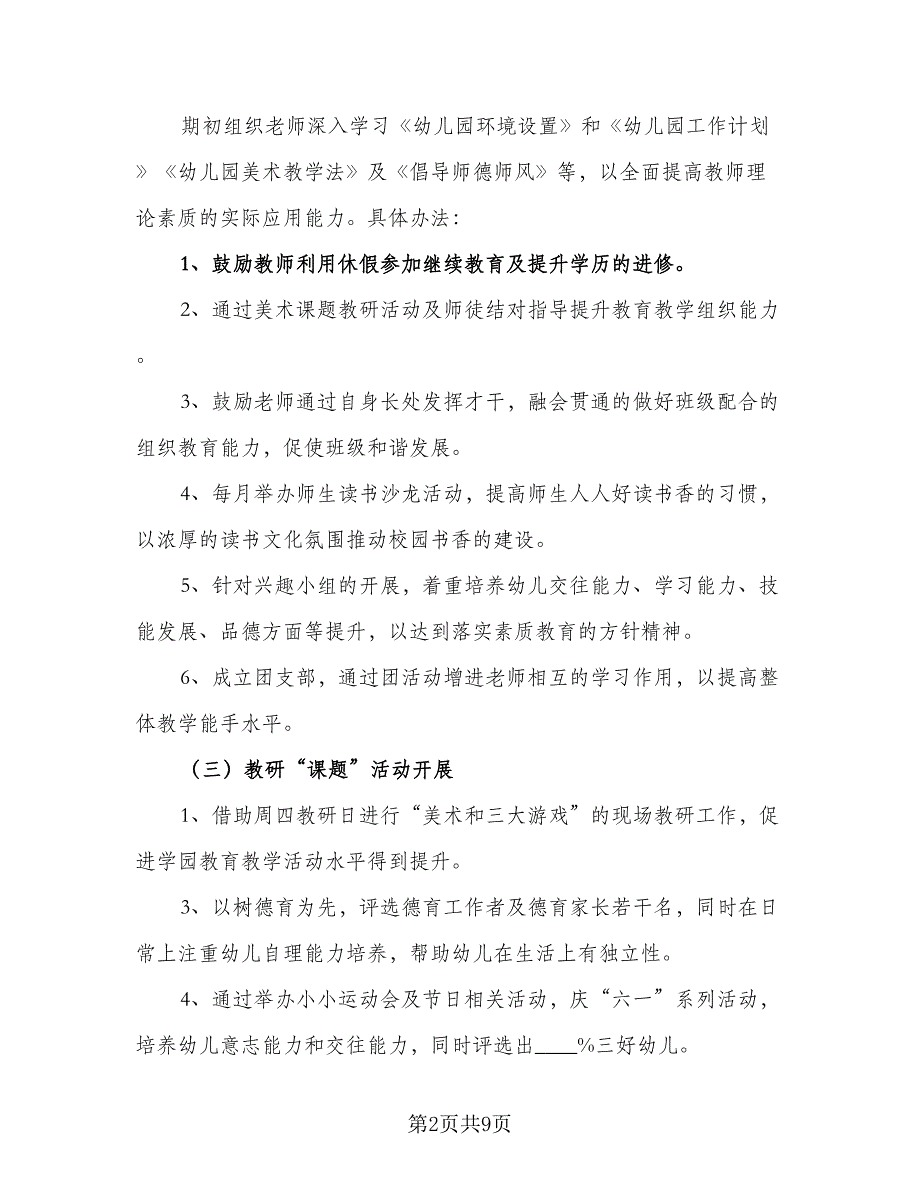 期初组织老师深入学习《幼儿园环境设置》和《幼儿园工作计划
》《幼儿园美术教学法》及《倡导师德师风》等，以全面提高教师理
论素质的实际应用能力。具体办法：
1、鼓励教师利用休假参加继续教育及提升学历的进修。
2、通过美术课题教研活动及师徒结对指导提升教育教学组织能力
。
3、鼓励老师通过自身长处发挥才干，融会贯通的做好班级配合的
组织教育能力，促使班级和谐发展。
4、每月举办师生读书沙龙活动，提高师生人人好读书香的习惯，
以浓厚的读书文化氛围推动校园书香的建设。
5、针对兴趣小组的开展，着重培养幼儿交往能力、学习能力、技
能发展、品德方面等提升，以达到落实素质教育的方针精神。
6、成立团支部，通过团活动增进老师相互的学习作用，以提高整
体教学能手水平。
（三）教研“课题”活动开展
1、借助周四教研日进行“美术和三大游戏”的现场教研工作，促
进学园教育教学活动水平得到提升。
3、以树德育为先，评选德育工作者及德育家长若干名，同时在日
常上注重幼儿自理能力培养，帮助幼儿在生活上有独立性。
4、通过举办小小运动会及节日相关活动，庆“六一”系列活动，
培养幼儿意志能力和交往能力，同时评选出____%三好幼儿。
第2页共9页